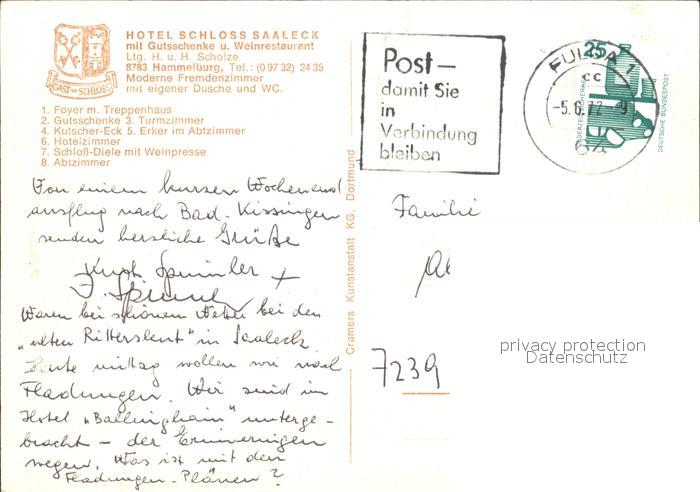 HOTEL SCHLOSS SAALECK
mit Gutsschenke u. Weinrestaurant
Ltg. H. u. H. Scholze
8783 Hammelburg, Tel.: (0 97 32) 24 35
Moderne Fremdenzimmer
mit eigener Dusche und WC.
GAST im SCHLOSS
1. Foyer m. Treppenhaus
2. Gutsschenke 3. Turmzimmer
4. Kutscher-Eck 5. Erker im Abtzimmer
6. Hotelzimmer
7. Schloß-Diele mit Weinpresse
8. Abtzimmer
Von einem kurzen Wochenend
ausflug nach Bad-Kissingen
senden herzliche Grüße
Kurt +
Waren bei schönem Wetter bei den
„alten Rittersleut" in Saaleck
Heute mittag wollen wir nach
Fladungen. Wir sind im
Hotel „Ballinghain" unterge-
bracht - der Erinnerungen
wegen. Was ist mit den
Fladungen-Plänen?
Cramers Kunstanstalt KG. Dortmund
Post—
damit Sie
in
Verbindung
bleiben
FULDA
cc
-5.6.72-9
64
25
DEUTSCHE BUNDESPOST
Familie
7239
privacy protection
Datenschutz